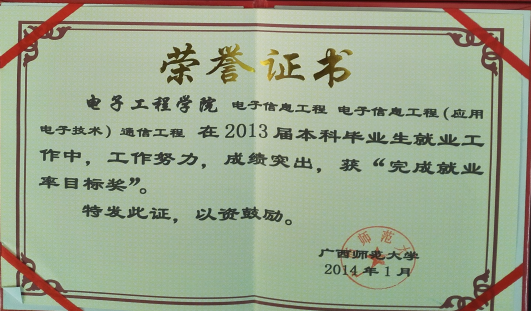 荣誉证书
电子工程学院 电子信息工程 电子信息工程(应用
电子技术) 通信工程 在2013届本科毕业生就业工
作中，工作努力，成绩突出，获“完成就业
率目标奖”。
特发此证，以资鼓励。
广西师范大学
2014年1月